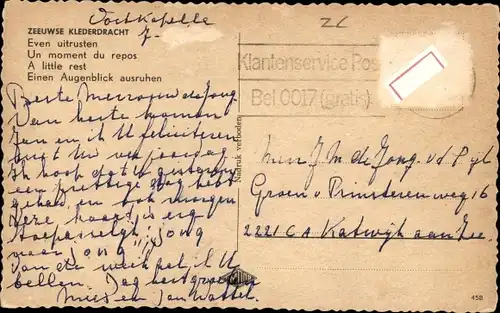 Oostkapelle
ZEEUWSE KLEDERDRACHT
Even uitrusten
Un moment du repos
A little rest
Einen Augenblick ausruhen
Klantenservice Pos
Bel 0017 (gratis)
Nadruk verboden
Beste Mevrouw de Jong
Van harte komen
Jan en ik U feliciteren
met Uw verjaardag
Ik hoop dat U gisteren
een prettige dag hebt
gehad en ook morgen
Deze kaart is erg
toepasselijk: jong
maar jong
van de week bel ik U
bellen. Dag hartgroeten
Mies en Jan
Mevr. J. M. de Jong. v.d. Pijl
Groen v. Prinstererenweg 16
2221 CA Katwijk aan Zee
458